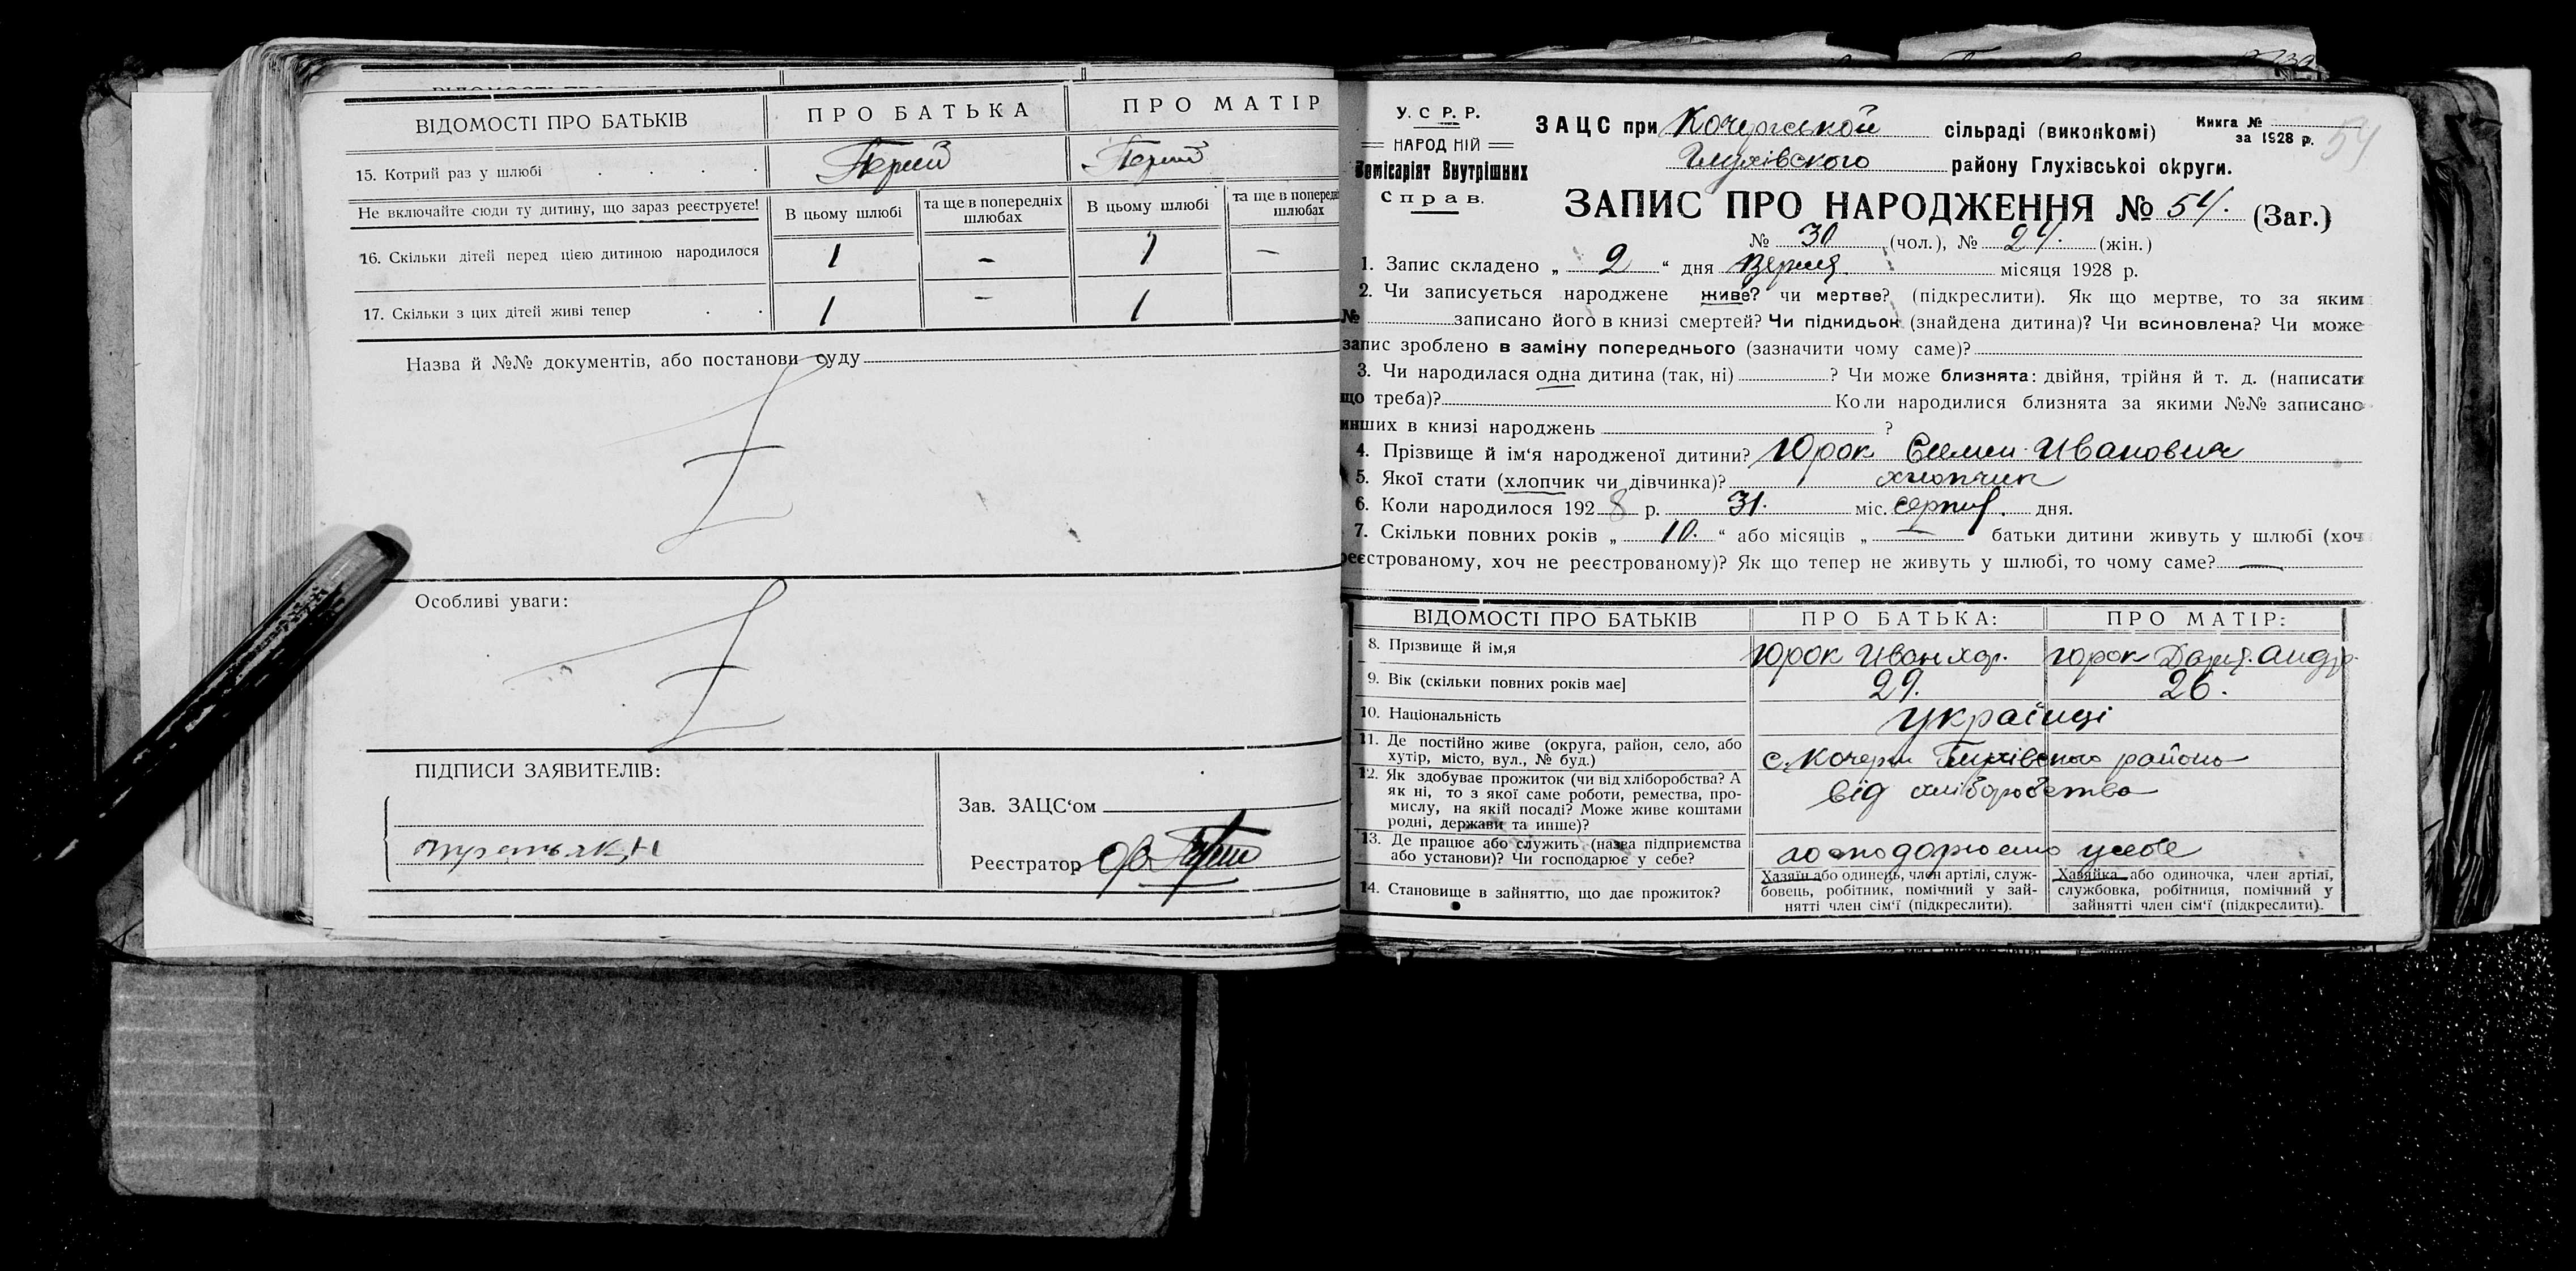 ВІДОМОСТІ ПРО БАТЬКІВ ПРО БАТЬКА ПРО МАТІР
15. Котрий раз у шлюбі . . . . Перший Перший
Не включайте сюди ту дитину, що зараз реєструєте! В цьому шлюбі та ще в попередніх шлюбах В цьому шлюбі та ще в шлюбах
16. Скільки дітей перед цією дитиною народилося 1 - 1 -
17. Скільки з цих дітей живі тепер . . 1 - 1
Назва й №№ документів, або постанови суду
Особливі уваги:
ПІДПИСИ ЗАЯВИТЕЛІВ:
Зав. ЗАЦС‘ом
Реєстратор
У. С Р. Р.
НАРОДНІЙ
Комісаріят Внутрішних
Справ.
ЗАЦС при Кочергської сільраді (виконкомі)
Книга №
за 1928 р.
54
Глухівского району Глухівської округи.
ЗАПИС ПРО НАРОДЖЕННЯ № 54. (Заг.)
№ 30 (чол.), № 24. (жін.)
1. Запис складено „ 2 “ дня місяця 1928 р.
2. Чи записується народжене живе? чи мертве? (підкреслити). Як що мертве, то за яким
№ записано його в книзі смертей? Чи підкидьок (знайдена дитина)? Чи всиновлена? Чи може
запис зроблено в заміну попереднього (зазначити чому саме)?
3. Чи народилася одна дитина (так, ні) ? Чи може близнята: двійня, трійня й т. д. (написати
що треба)? Коли народилися близнята за якими №№ записано
инших в книзі народжень ?
4. Прізвище й ім‘я народженої дитини? Юрок Семен Иванович
5. Якої стати (хлопчик чи дівчинка)? хлопчик
6. Коли народилося 1928 р. 31. міс. серпня. дня.
7. Скільки повних років „ 10. “ або місяців „ — батьки дитини живуть у шлюбі (хоч
реєстрованому, хоч не реєстрованому)? Як що тепер не живуть у шлюбі, то чому саме? —
ВІДОМОСТІ ПРО БАТЬКІВ ПРО БАТЬКА: ПРО МАТІР:
8. Прізвище й ім,я Юрок Иван Юрок Дарія
9. Вік (скільки повних років має] 29. 26.
10. Національність українці
11. Де постійно живе (округа, район, село, або
хутір, місто, вул., № буд.) с. Кочерги Глухівського району
12. Як здобуває прожиток (чи від хліборобства? А
як ні, то з якої саме роботи, ремества, про-
мислу, на якій посаді? Може живе коштами
родні, держави та инше)? від хліборобства
13. Де працює або служить (назва підприємства
або установи)? Чи господарює у себе? господорюємо усебе
14. Становище в зайняттю, що дає прожиток?
Хазяїн або одинець, член артілі, служ-
бовець, робітник, помічний у зай-
нятті член сім‘ї (підкреслити).
Хазяйка або одиночка, член артілі,
службовка, робітниця, помічний у
зайнятті член сім‘ї (підкреслити).